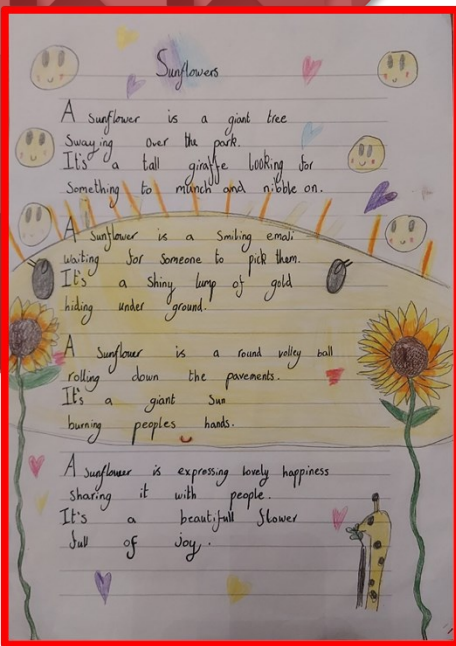 Sunflowers
A sunflower is a giant tree
Swaying over the park.
It's a tall giraffe looking for
Something to munch and nibble on.
A Sunflower is a Smiling emoji
waiting for someone to pick them.
It's a Shiny lump of gold
hiding under ground.
A Sunflower is a round volley ball
rolling down the pavements.
It's a giant Sun
burning peoples hands.
A Sunflower is expressing lovely happiness
Sharing it with people.
It's a beautifull flower
full of joy.